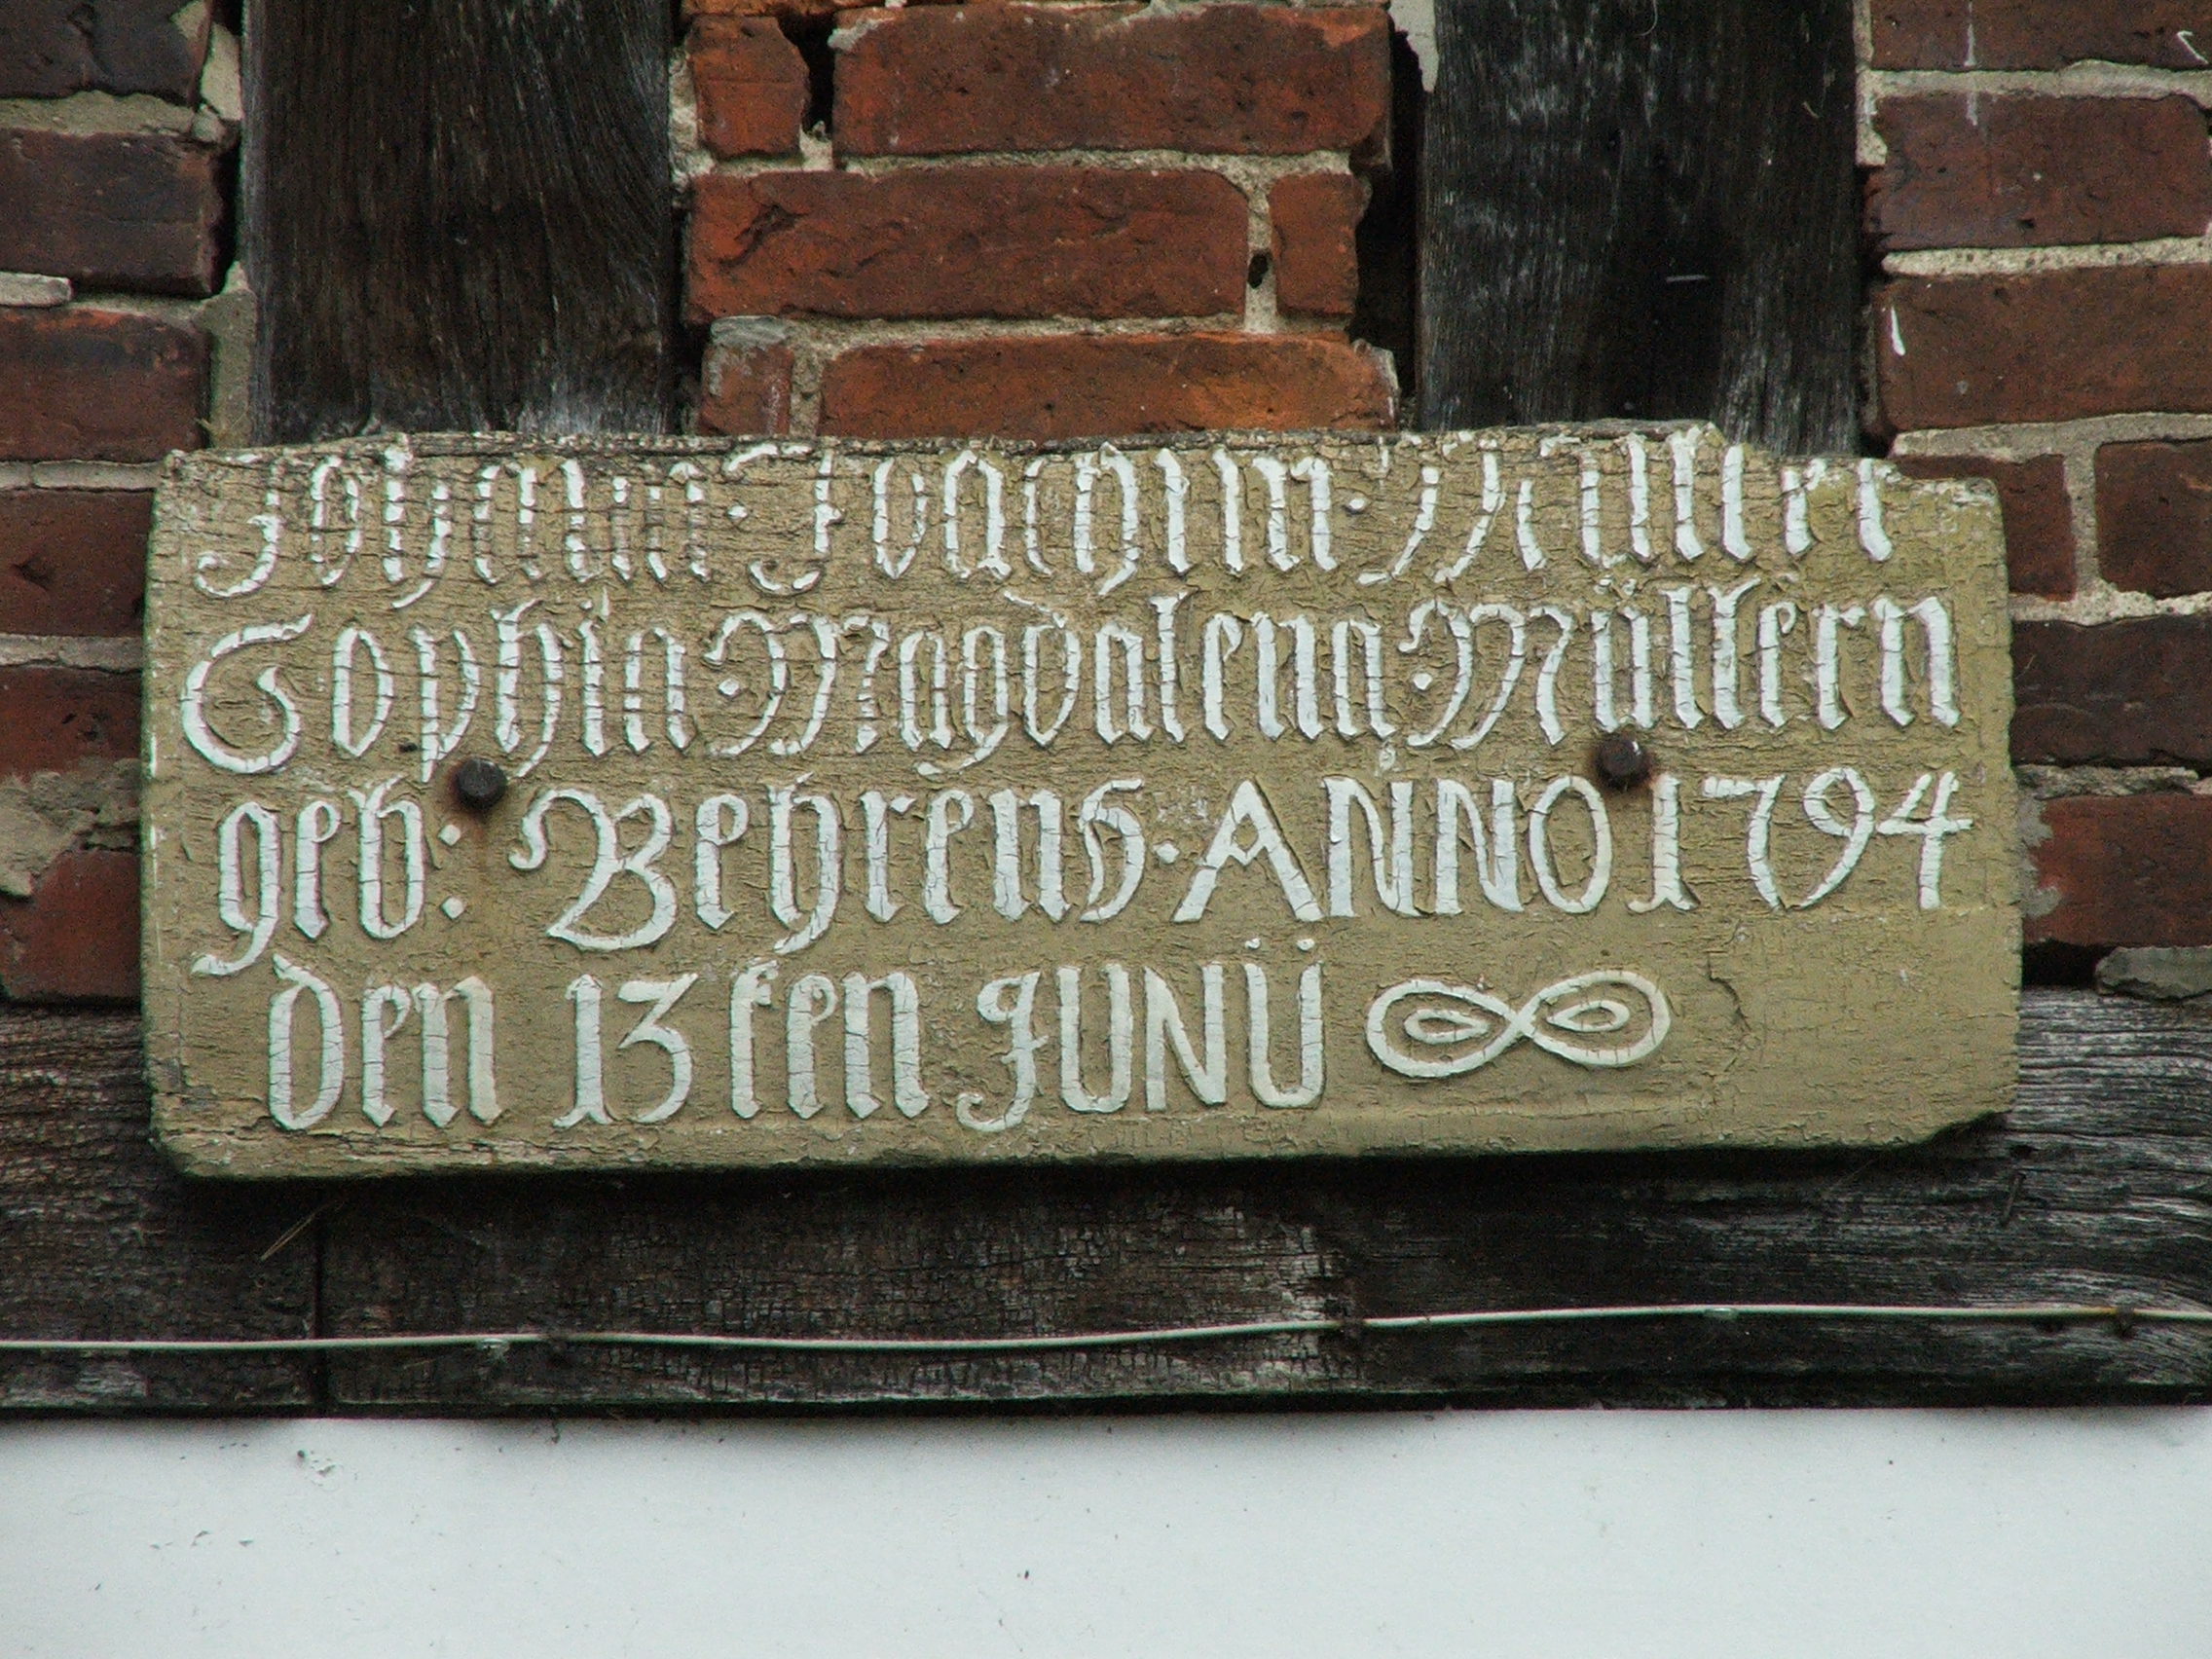 Johann·Joachim·Müller
Sophia·Magdalena·Müllern
geb: Behrens·ANNO 1794
den 13ten JUNÜ